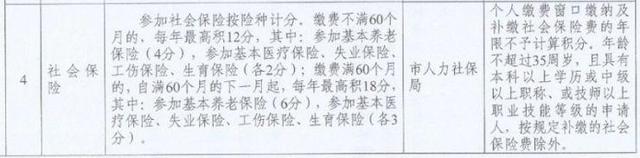 4
社会保
险
参加社会保险按险种计分。缴费不满60个
月的，每年最高积12分，其中：参加基本养老
保险（4分），参加基本医疗保险、失业保险、
工伤保险、生育保险（各2分）；缴费满60个月
的，自满60个月的下一月起，每年最高积18分，
其中：参加基本养老保险（6分），参加基本医
疗保险、失业保险、工伤保险、生育保险（各3
分）。
市人力社保
局
个人缴费窗口缴纳及
补缴社会保险费的年
限不予计算积分。年龄
不超过35周岁，且具有
本科以上学历或中级
以上职称、或技师以上
职业技能等级的申请
人，按规定补缴的社会
保险费除外。